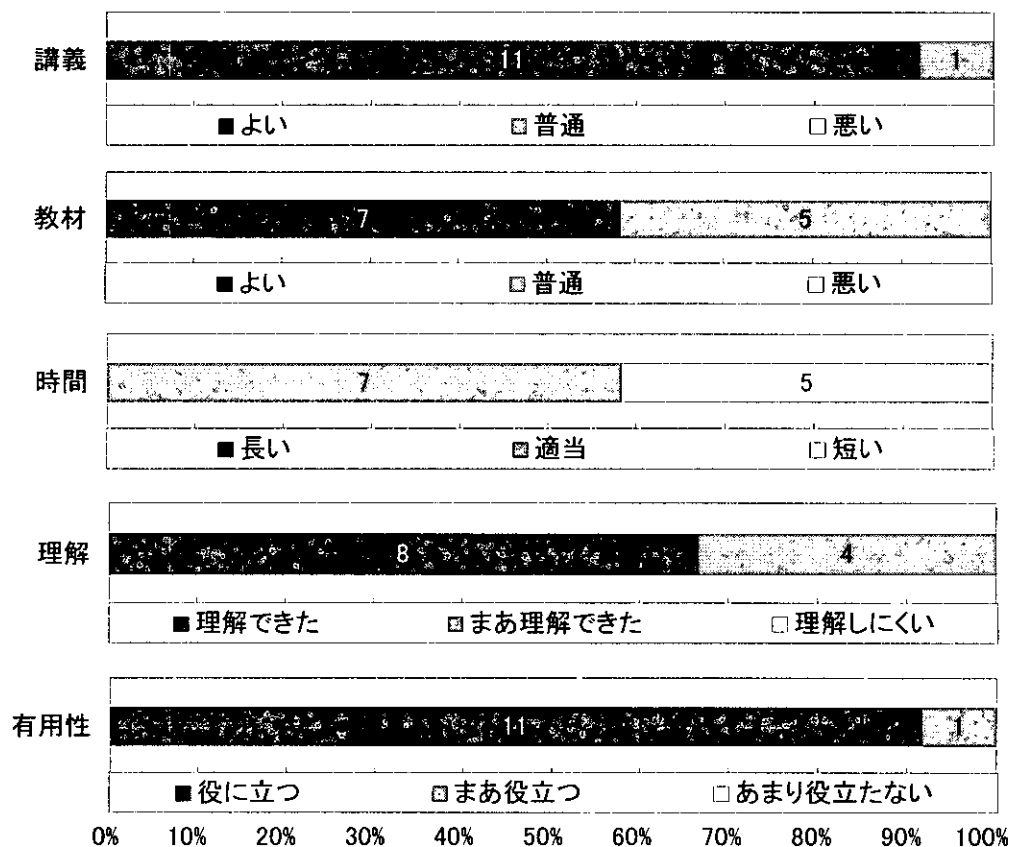 講義 11 1
■よい □普通 □悪い
教材 7 5
■よい □普通 □悪い
時間 7 5
■長い □適当 □短い
理解 8 4
■理解できた □まあ理解できた □理解しにくい
有用性 11 1
■役に立つ □まあ役立つ □あまり役立たない
0% 10% 20% 30% 40% 50% 60% 70% 80% 90% 100%